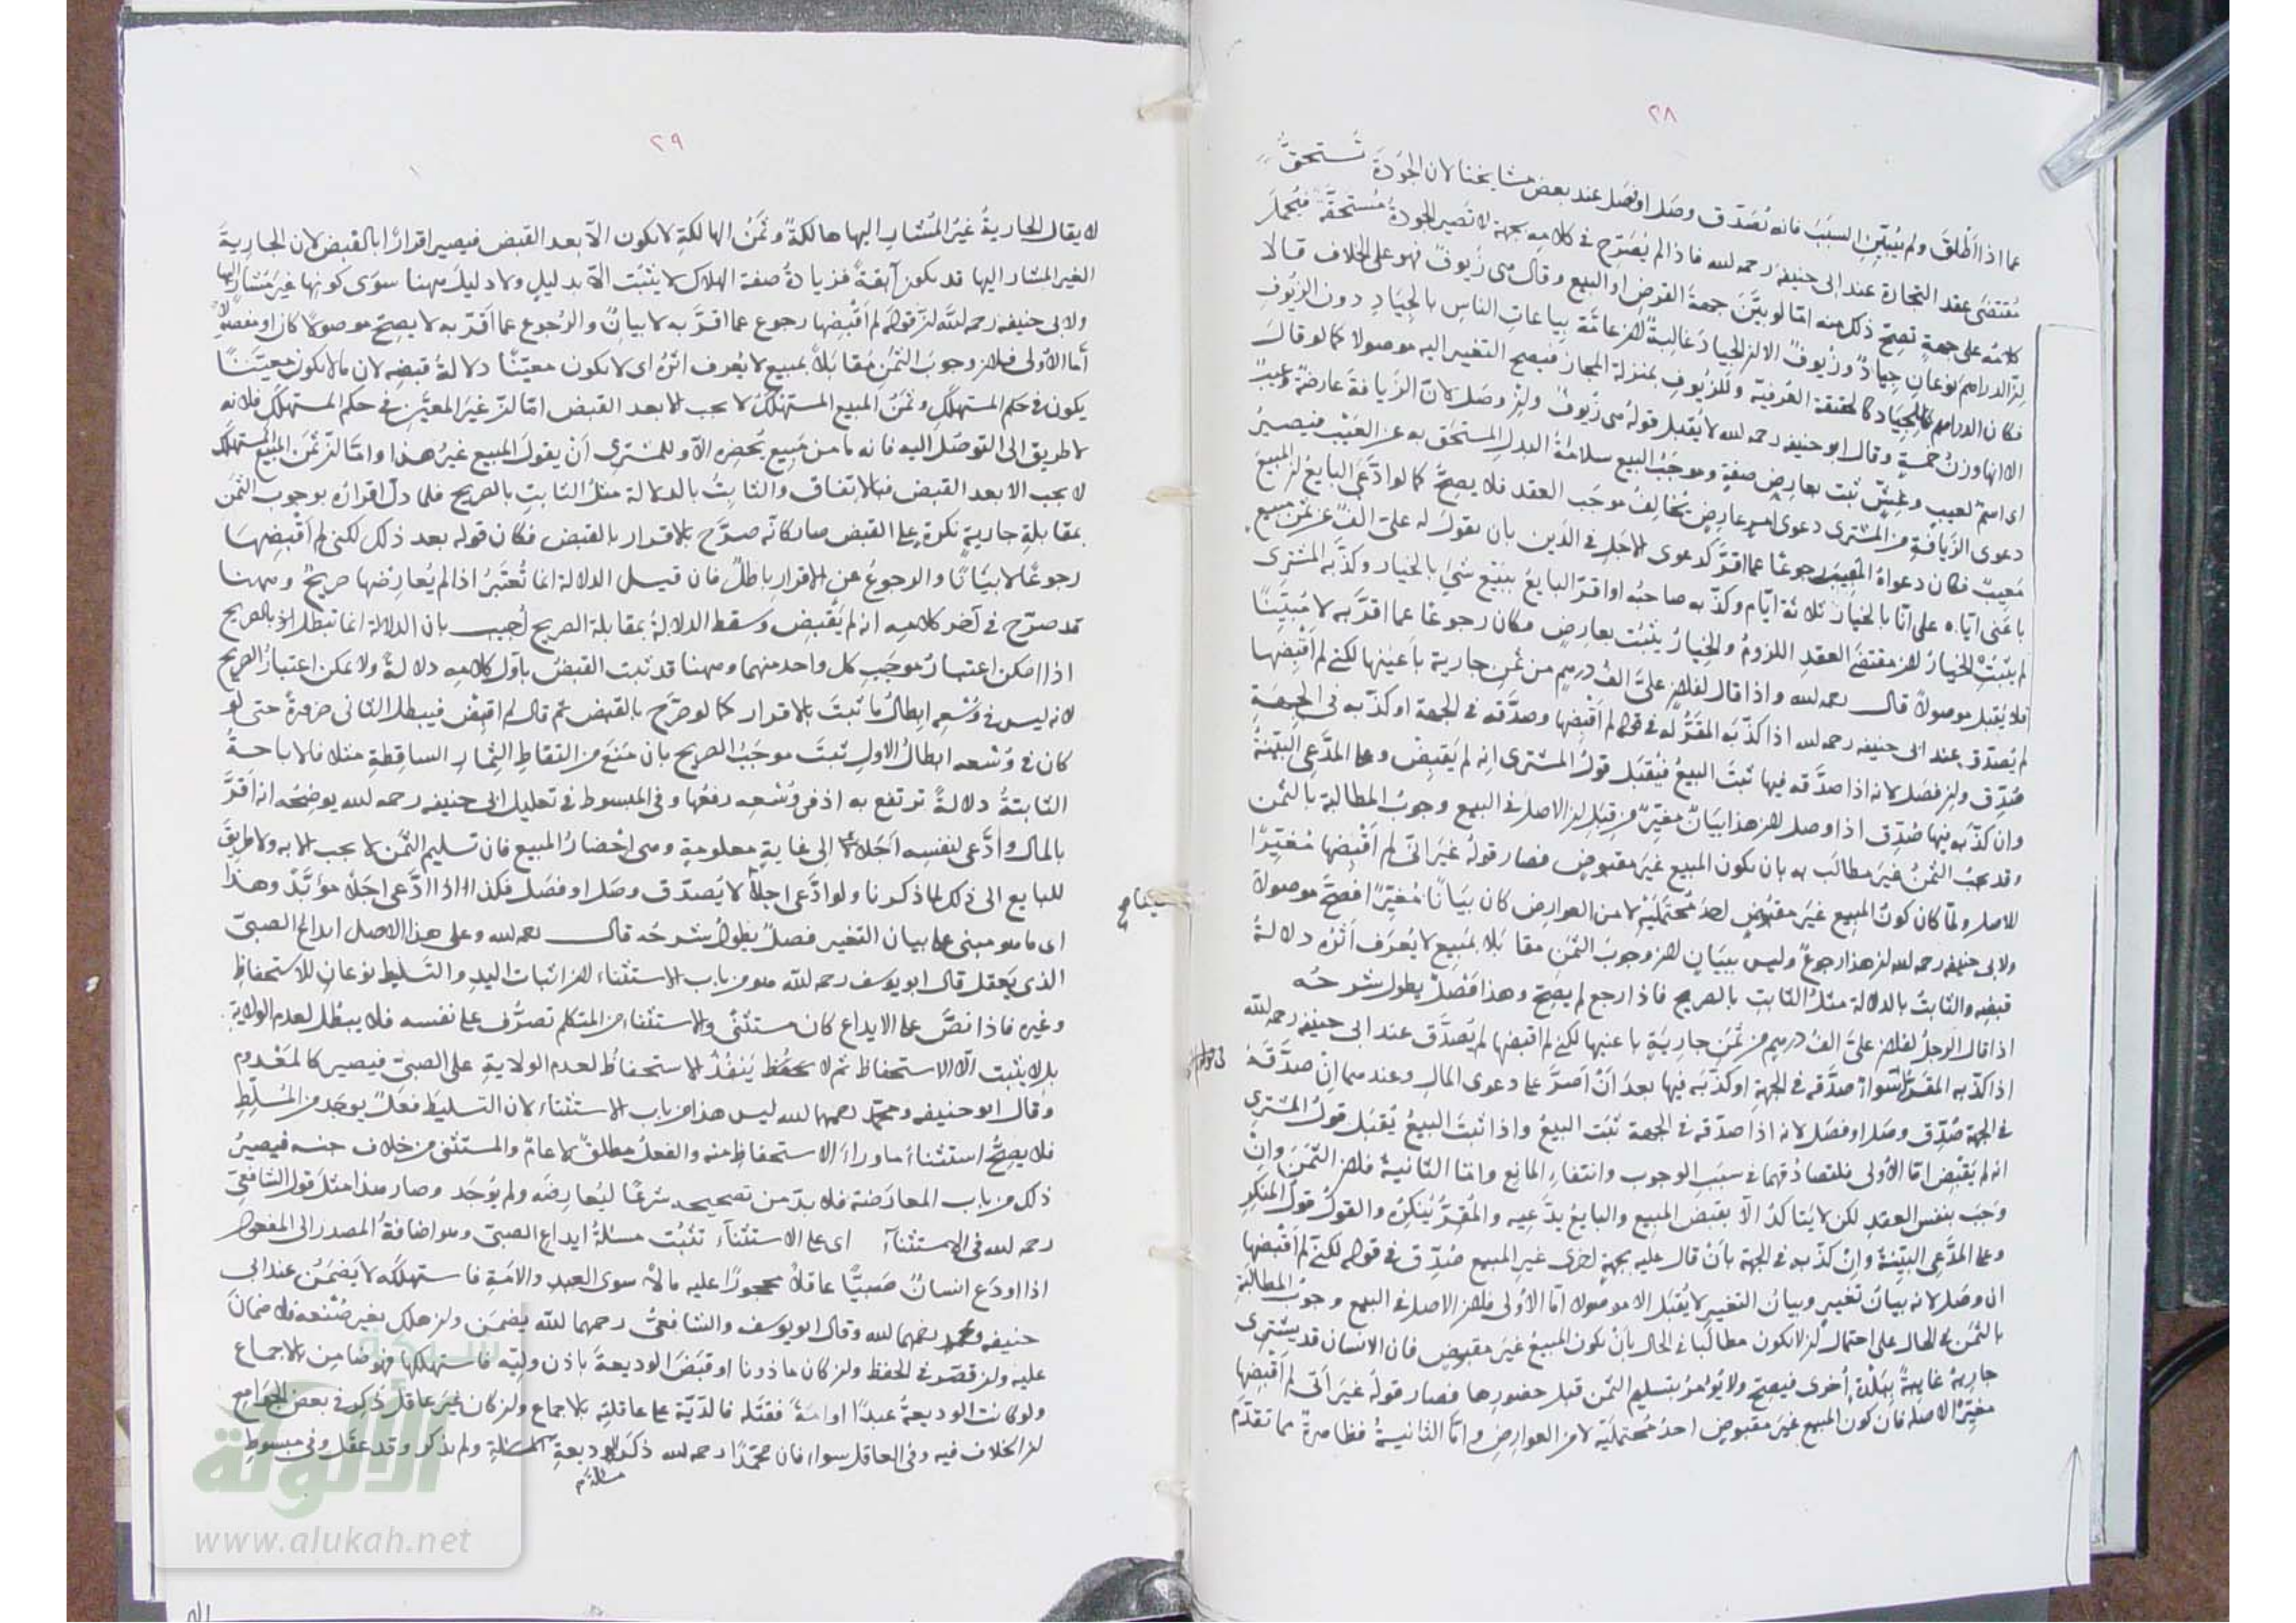 ٢٨
عما اذا اَطْلَقَ ولم يُبَيِّنِ السبَبَ فانه يُصَدَّق وصَل او فصَل عند بعض مشايخنا لان الجُودَةَ تُستحقُّ
مُقتضَى عقد التجارة عند ابى حنيفة رحمه الله فاذا لم يُصَرّح فى كلامه بجهةٍ لا تَصير الجودةُ مُستحقَّةً فيُحمل
كلامُه على جهةٍ تصِحّ ذلك منه امّا لو بيَّنَ جهةَ القرض او البيع وقال هى زُيُوفٌ فهو على الخلاف قالا
لِنّ الدراهم نوعانِ جِيادٌ وزُيُوفٌ الا لن الجيادَ غالِبةٌ لان عامّة بياعاتِ الناسِ بالجِيَادِ دون الزيُوفِ
فكان الدراهم للجِيَاد كالحقيقة العُرفيّة وللزيُوفِ بمنزلة المجاز فيصح التغيير اليه موصولا كما لو قالَ
الا انها وزنُ خمسةٍ وقال ابو حنيفة رحمه الله لا يُقبل قولُه هى زُيُوفٌ ولنْ وصَل لانّ الزِيافةَ عارضةٌ وعيبٌ
اى اسمٌ لعيبٍ وغِشٍّ ثبت بعارِضِ صفةٍ وموجَبُ البيع سلامَةُ البدل المستحَق به عن العَيْب فيصيرُ
دعوى الزِيافةِ من المشترى دعوى امرٍ عارِضٍ يُخالِفُ موجَب العقد فلا يصِحُّ كما لو ادَّعى البايعُ لن المبيعَ
مَعِيبٌ فكان دعواهُ العَيبَ رجوعًا عما اقرَّ كدعوى الاجَلِ فى الدَين بان يقولَ له علىّ الفٌ عن ثمن مبيعٍ
باعنى ايّاه على انّا بالخيار ثلاثة ايّامٍ وكذّبه صاحبُه او اقرّ البايعُ ببَيْعِ شئٍ بالخيار وكذّبه المشترى
لم يثبُتِ الخيارُ لان مقتضَى العقدِ اللزومُ والخِيارُ يثبُت بعارِضٍ فكان رجوعًا عما اقرَّ به لا مُبَيِّنًا
فلا يُقبل موصولاً قال رحمه الله واذا قال لفلانٍ علىَّ الفُ درهمٍ من ثمنِ جارية باعَنِيها لكنى لم اَقْبِضها
لم يُصدّق عند ابى حنيفة رحمه الله اذا كذّبه المقَرُّ له فى قوله لم اَقْبِضها وصدّقه فى الجهة او كذّبه فى الجهة
صُدِّق ولن فصَل لانه اذا صدَّقه فيها ثبَتَ البيعُ فيُقبَل قولُ المشترى انه لم يَقبِضْ وعلى المدّعى البيّنةُ
وان كذّبه فيها صُدِّق اذا وصل لان هذا بيَانٌ مغيِّرٌ من قِبَلِ لن الاصلَ فى البيع وجوبُ المطالبة بالثمن
وقد يجبُ الثمنُ غيرَ مطالَب به بان يكون المبيع غيرَ مقبوضٍ فصار قولُه غيرَ انّى لم اَقْبِضْها مُغيِّرًا
للاصل ولمّا كان كونُ المبيع غيرَ مقبُوضٍ احدُ مُحتمَلَيْهِ لا من العوارِض كان بيَانًا مُغيّرًا فصَحَّ موصولا
ولابى حنيفة رحمه الله لن هذا رجوعٌ وليس ببيَانٍ لان وجوبَ الثمَنِ مقابَلا بمَبِيعٍ لا يُعرَف اَثَرُه دلالةُ
قبضِه والثابتُ بالدلالة مثلُ الثابتِ بالصريح فاذا رجع لم يصِحّ وهذا فَصْلٌ يطول شرحُه
اذا قال الرجلُ لفلانٍ علىَّ الفُ درهمٍ من ثمَنِ جاريةٍ باعنيها لكنى لم اقبضها لم يُصدَّق عند ابى حنيفة رحمه الله
اذا كذّبه المقَرُّ له سواءٌ صدَّقه فى الجهةِ او كذّبَه فيها بعدَ اَنْ اَصرَّ على دعوى المالِ وعندهما انْ صدَّقَهُ
فى الجهة صُدِّق وصَل او فصَل لانه اذا صدّقه فى الجهة ثبَت البيعُ واذا ثبتَ البيعُ يُقبَل قولُ المشترى
انه لم يَقْبِض امّا الأولى فلتصادُقهما فى سبَبِ الوجوب وانتفاءِ المانع وامّا الثانيةُ فلان الثمَنَ وانْ
وجَبَ بنفس العقدِ لكن لا يَتاكدُ الّا بقبض المبيع والبايعُ يدَّعيه والمُقِرُّ يُنكِرُه والقولُ قولُ المنكرِ
وعلى المدَّعى البيّنةُ وانْ كذّبه فى الجهة بأنْ قال عليه بجهةٍ اخرى غيرِ المبيع صُدِّق فى قوله لكنّى لم اَقْبِضها
ان وصَل لانه بيانُ تغييرٍ وبيانُ التغييرِ لا يُقبَل الا موصُولا امّا الأولى فلان الاصلَ فى البيع وجوبُ المطالبةِ
بالثمَن فى الحال على احتمالِ لن لا يكون مطالَبًا فى الحال بأنْ يكونَ المبيعُ غيرَ مقبوضٍ فان الانسان قد يشترى
جاريةً غايبةً ببَلْدةٍ أخرى فيصِحّ ولا يُؤمرُ بتسليم الثمن قبل حضورِها فصار قولُه غيرَ أنّى لم اَقْبِضها
مغيِّرًا لاصله فان كونَ المبيع غيرَ مقبوضٍ احدُ مُحتمَلَيه لا من العوارِضِ وامّا الثانيةُ فظاهرةٌ مما تقدّم
٢٩
لا يقال الجاريةُ غيرُ المُشار اليها هالكةٌ وثمَنُ الهالكةِ لا يكون الّا بعد القبض فيصير اقرارًا بالقبض لان الجاريةَ
الغير المشار اليها قد يكون آبقةً فزيادةُ صفة الهلاك لا يثبَت الّا بدليلٍ ولا دليلَ ههنا سوَى كونها غيرَ مُشارٍ اليها
ولابى حنيفة رحمه الله لنّ قوله لم اَقْبِضها رجوع عما اقرَّ به لا بيانٌ والرُجوع عما اَقَرّ به لا يصِحّ موصولا كان او مفصولا
أمّا الأولى فلان وجوبَ الثمَنِ مُقابَلاً بمبيعٍ لا يُعرف اثرُه اى لا يكون معيّنًا دلالةُ قبضِه لان ما لا يكون معيَّنًا
يكون فى حكم المستهلَكِ وثمَنُ المبيع المستهلَكِ لا يجب الا بعد القبض امّا لنّ غيرَ المعيَّن فى حكم المستهلَكِ فلانه
لا طريق الى التوصّل اليه فانه ما من مَبيعٍ يُحضِره الّا وللمشترى اَنْ يقولَ المبيع غيرُ هذا وامّا لنّ ثمَن المبيع المستهلَك
لا يجب الا بعد القبض فبالاتفاق والثابِتُ بالدلالة مثلُ الثابتِ بالصريح فلما دلّ اقرارُه بوجوب الثمَن
بمقابلة جاريةٍ نكرةٍ على القبض صار كانّه صرَّح بالاقرار بالقبض فكان قوله بعد ذلك لكنى لم اَقْبِضهَا
رجوعًا لا بيَانًا والرجوعُ عن الاقرار باطلٌ فان قيل الدلالة انما تُعتَبَرُ اذا لم يُعارِضْها صريحٌ وههنا
قد صرّح فى آخر كلامه انه لم يَقْبِض وسقط الدلالةُ بمقابلة الصريح أُجيب بان الدلالة انما تبطل بالصريح
اذا امكن اعتبارُ موجَبِ كل واحد منهما وههنا قد ثبت القبضُ باوّل كلامِه دلالةً ولا يمكن اعتبارُ الصريح
لانه ليس فى وُسْعِه ابطالُ ما ثبتَ بالاقرار كما لو صرّح بالقبض ثم قال لم اقبِضْ فيبطل الثانى ضرورةً حتى لو
كان فى وُسْعه ابطالُ الاول ثبتَ موجَبُ الصريح بان مَنَعَ من التقاطِ الثِمارِ الساقِطةِ مثلا فالاباحةُ
الثابتةُ دلالةً ترتفع به اذ فى وُسْعِه رفعُها وفى المبسوط فى تعليل ابى حنيفة رحمه الله يوضِحُه انه اقَرَّ
بالمال وادَّعى لنفسه اَجَلًا الى غايةٍ معلومةٍ وهى احْضارُ المبيع فان تسليم الثمَن لا يجب الا به ولا طريقَ
للبايع الى ذلك لما ذكرنا ولو ادَّعى اجلاً لا يُصدّق وصَل او فصَل فكذا اذا ادَّعى اجَلًا مؤبَّدً وهذا
اى ما هو مبنى على بيان التغيير فصلٌ يطولُ شرحُه قال رحمه الله وعلى هذا الاصل ايداع الصبىّ
الذى يَعقل قال ابو يوسف رحمه الله هو من باب الاستثناء لان اثبات اليدِ والتَسليط نوعان للاستحفاظِ
وغيره فاذا نصَّ على الايداع كان مستثنًى والاستثناءُ من المتكلم تصرُّف على نفسه فلا يبطُل لعدم الولاية
بل لا يثبُت الّا الاستحفاظ ثم لا يَنفُذُ الاستحفاظُ لعدم الولايةِ على الصبىّ فيصير كالمَعْدوم
وقال ابو حنيفة ومحمّد رحمهما الله ليس هذا من باب الاستثناء لان التسليطَ فعلٌ يوجَد من المُسَلِّطِ
فلا يصِحُّ استثناءُ ما وراءَ الاستحفاظِ منه والفعلُ مطلقٌ لا عامٌّ والمستثنى من خلاف جنسه فيصيرُ
ذلك من باب المعارَضة فلا بدّ من تصحيحه شرعًا ليُعارِضَه ولم يُوجَد وصار هذا مثلَ قول الشافعىّ
رحمه الله فى الاستثنآء اى على الاستثنآء تثبُت مسئلةُ ايداع الصبىّ وهو اضافةُ المصدر الى المفعول
اذا اودَع انسانٌ صَبِيًّا عاقلًا محجورًا عليه مالاً سوى العبدِ والامَةِ فاستهلكه لا يَضمَنُ عند ابى
حنيفة ومحمد رحمهما الله وقال ابو يوسف والشافعىّ رحمهما الله يضمَن ولن هلك بغير صُنْعِه فلا ضمانَ
عليه ولن قصّر فى الحفظ ولن كان ماذونا او قبَضَ الوديعةَ باذن وليّه فاستهلكها فهو ضامِن بالاجماع
ولو كانت الوديعةُ عبدًا او امةً فقتَله فالدّيّة على عاقلتِه بالاجماع ولن كان غيرَ عاقل ذُكِر فى بعض الجوامع
لن الخلاف فيه وفى العاقل سواء فان محمّدًا رحمه الله ذكر الوديعةِ المسئلة ولم يذكر وقد عقَل وفى مبسوطِ
مسئلةَ
الألوكة
www.alukah.net